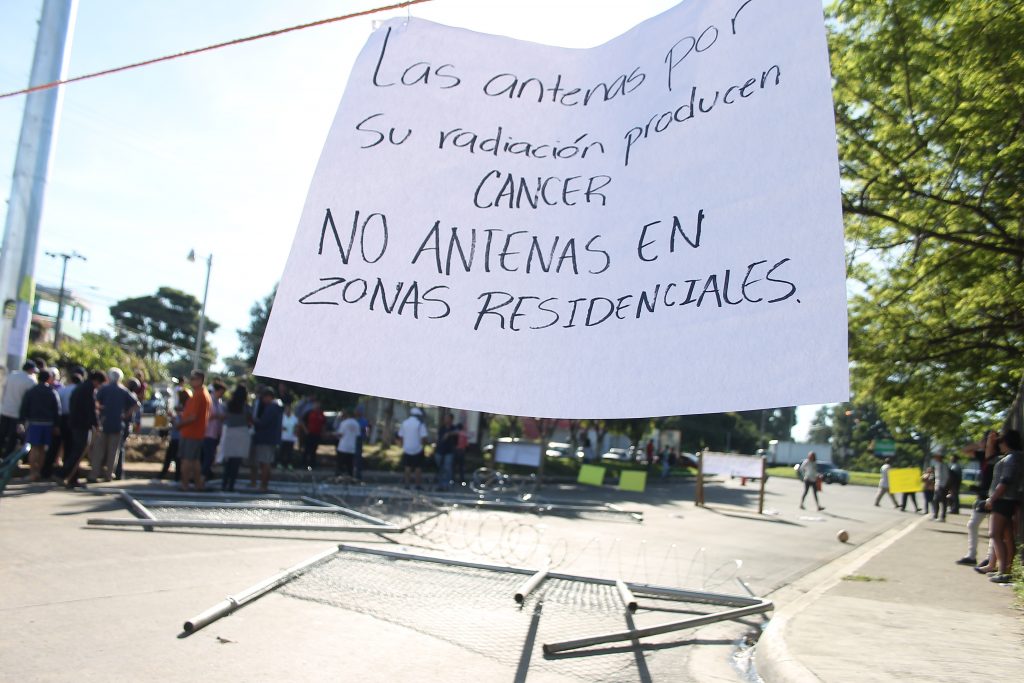 Las antenas por
su radiación producen
CANCER
NO ANTENAS EN
ZONAS RESIDENCIALES.